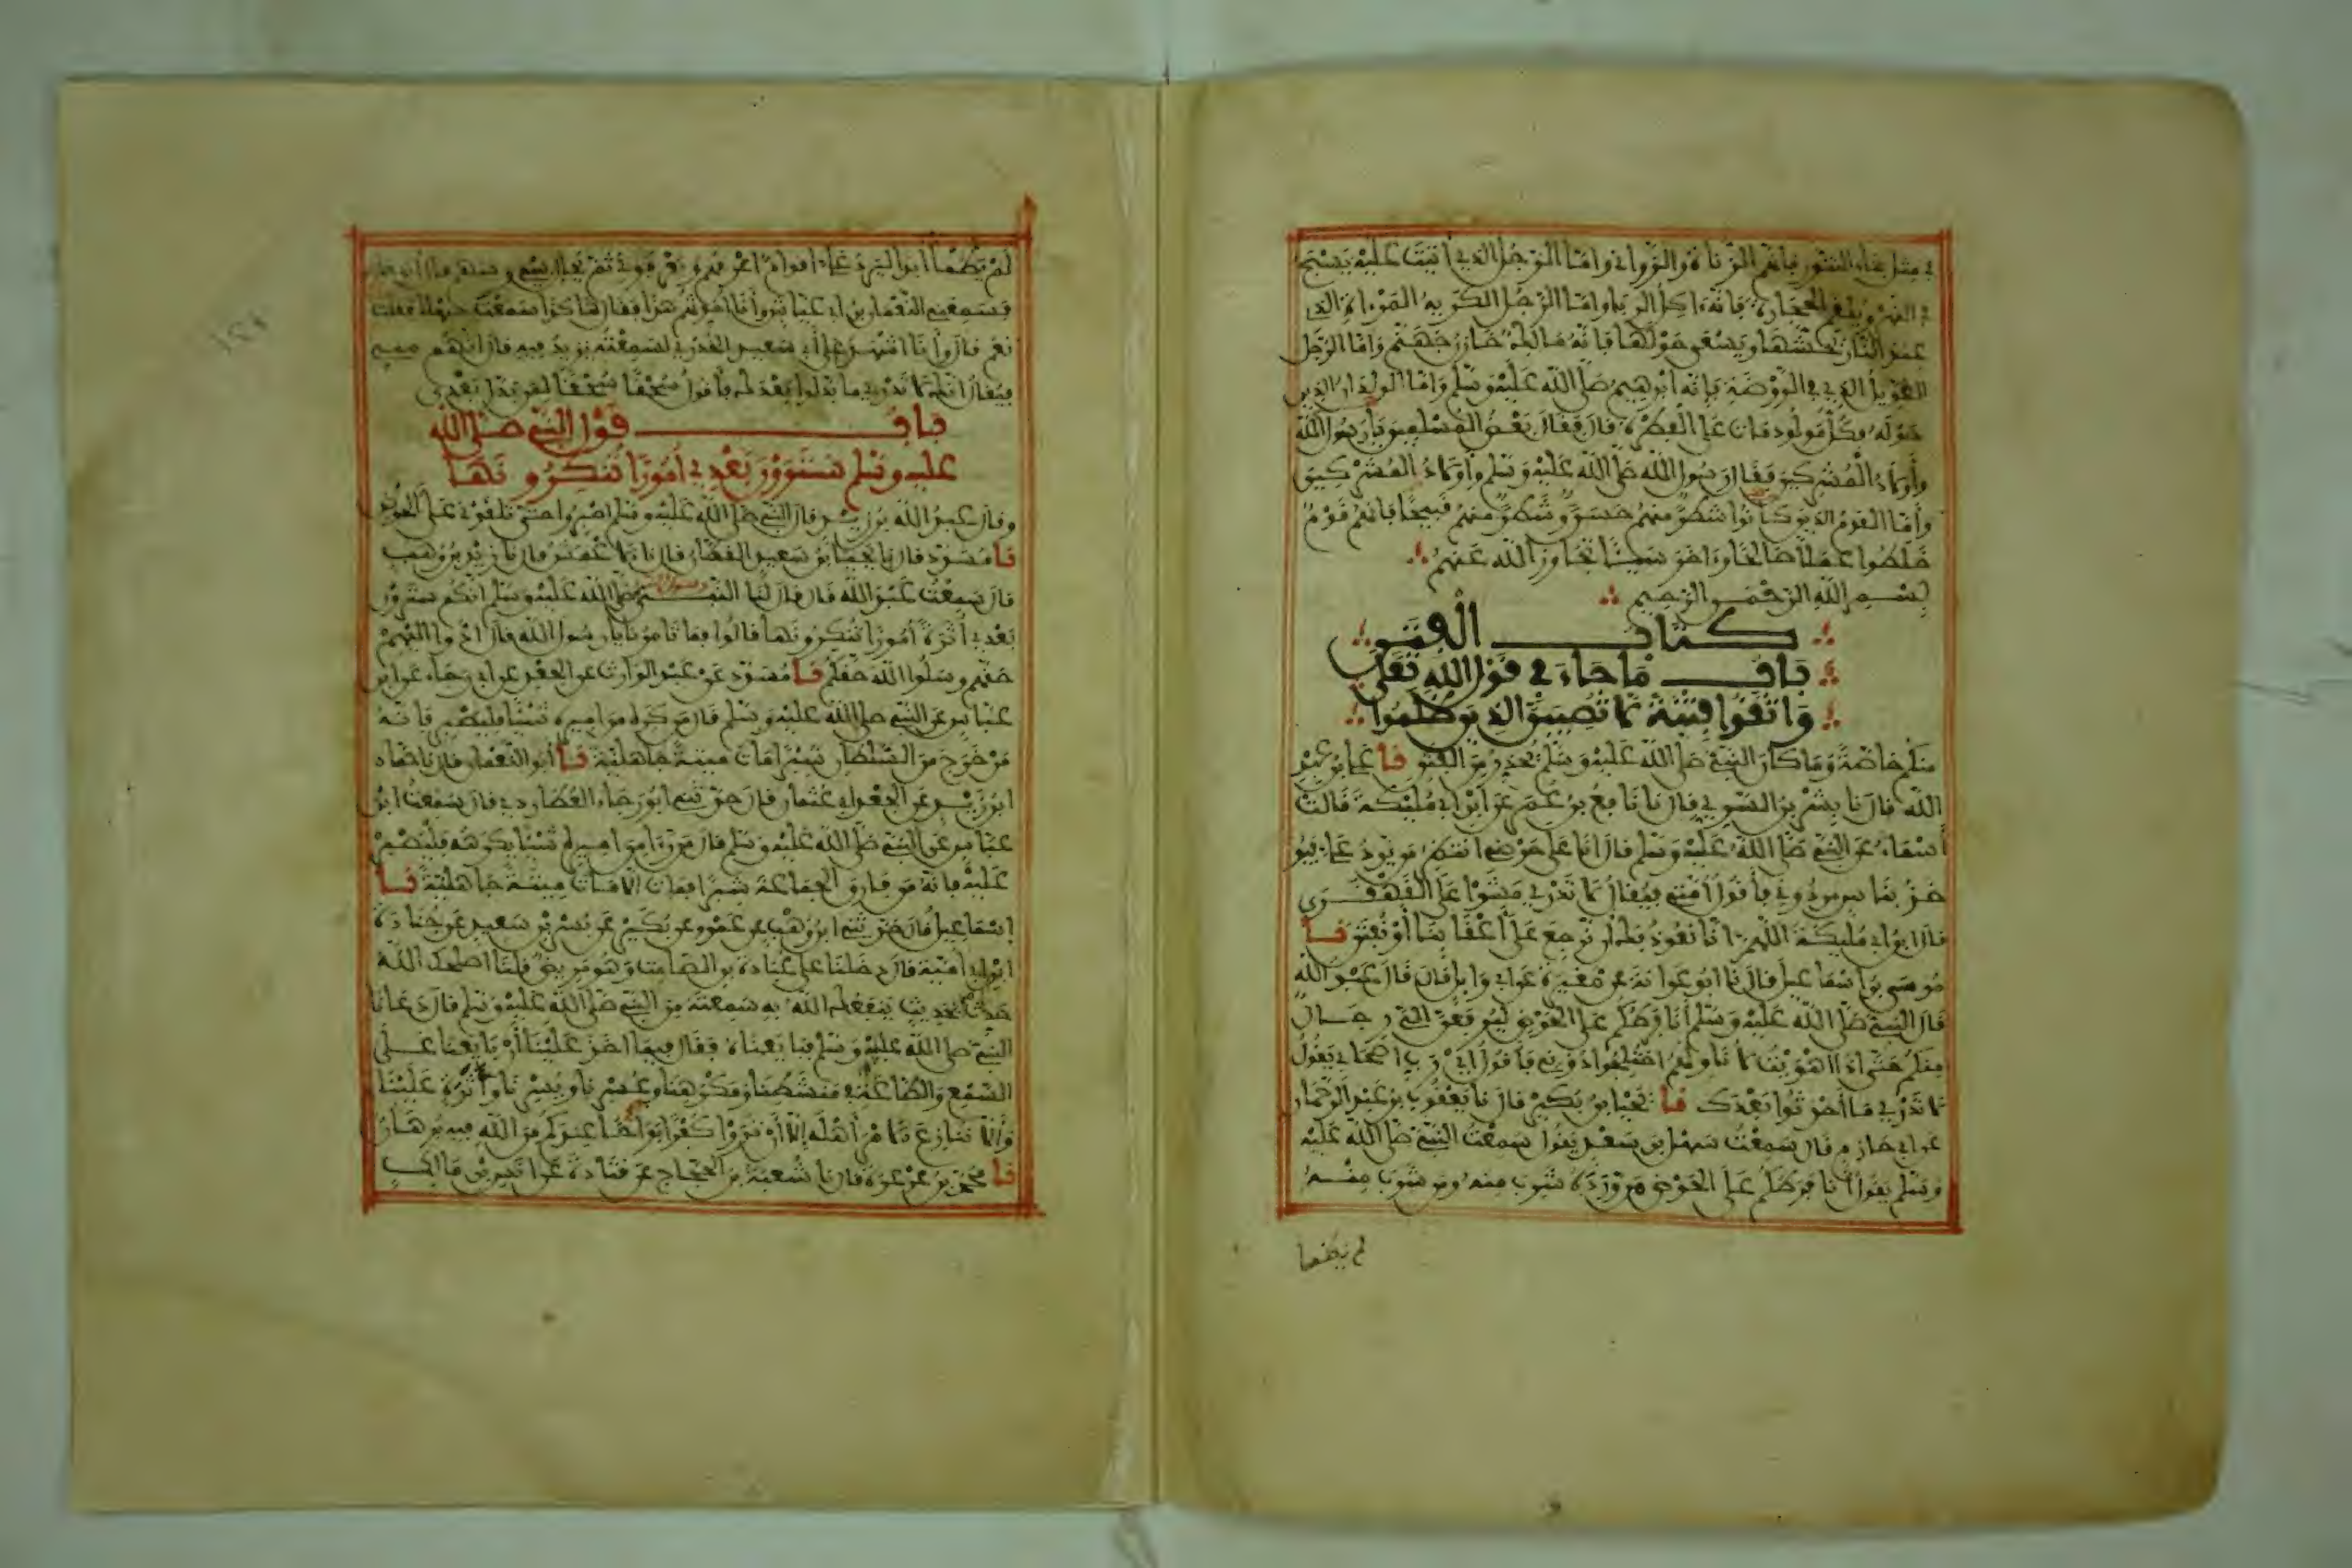 في مثل بناء التنور فإنهم الزناة والزواني وأما الرجل الذي أتيت عليه يسبح
في النهر ويلقم الحجارة فإنه آكل الربا وأما الرجل الكريه المرءاة الذي
عند النار يحشها ويسعى حولها فإنه مالك خازن جهنم وأما الرجل
الطويل الذي في الروضة فإنه إبرهيم صلى الله عليه وسلم وأما الولدان الذين
حوله فكل مولود مات على الفطرة قال فقال بعض المسلمين يا رسول الله
وأولاد المشركين فقال رسول الله صلى الله عليه وسلم وأولاد المشركين
وأما القوم الذين كانوا شطر منهم حسن وشطر منهم قبيحا فإنهم قوم
خلطوا عملا صالحا وءاخر سيئا تجاوز الله عنهم
بسم الله الرحمن الرحيم
كتاب الفتن
باب ما جاء في قول الله تعلى
واتقوا فتنة لا تصيبن الذين ظلموا
منكم خاصة وما كان النبي صلى الله عليه وسلم يحذر من الفتن نا علي بن عبد
الله قال نا بشر بن السري قال نا نافع بن عمر عن ابن أبي مليكة قالت
أسماء عن النبي صلى الله عليه وسلم قال أنا على حوضي أنتظر من يرد علي فيو
خذ بناس من دوني فأقول أمتي فيقال لا تدري مشوا على القهقرى
قال ابن أبي مليكة اللهم إنا نعوذ بك أن نرجع على أعقابنا أو نفتن نا
موسى بن إسماعيل قال نا أبو عوانة عن مغيرة عن أبي وائل قال قال عبد الله
قال النبي صلى الله عليه وسلم أنا فرطكم على الحوض ليرفعن إلي رجال
منكم حتى إذا أهويت لأناولهم اختلجوا دوني فأقول أي رب أصحابي يقول
لا تدري ما أحدثوا بعدك نا يحيى بن بكير قال نا يعقوب بن عبد الرحمان
عن أبي حازم قال سمعت سهل بن سعد يقول سمعت النبي صلى الله عليه
وسلم يقول أنا فرطكم على الحوض من ورده شرب منه ومن شرب منه
لم يظمأ
لم يظمأ أبدا ليرد علي أقوام أعرفهم ويعرفوني ثم يحال بيني وبينهم قال أبو حازم
فسمعني النعمان بن أبي عياش وأنا أحدثهم هذا فقال هكذا سمعت سهلا فقلت
نعم قال وأنا أشهد على أبي سعيد الخدري لسمعته يزيد فيه قال إنهم مني
فيقال إنك لا تدري ما بدلوا بعدك فأقول سحقا سحقا لمن بدل بعدي
باب قول النبي صلى الله
عليه وسلم سترون بعدي أمورا تنكرونها
وقال عبد الله بن زيد قال النبي صلى الله عليه وسلم اصبروا حتى تلقوني على الحوض
نا مسدد قال نا يحيى بن سعيد القطان قال نا الأعمش قال نا زيد بن وهب
قال سمعت عبد الله قال قال لنا النبي رسول الله صلى الله عليه وسلم إنكم سترون
بعدي أثرة وأمورا تنكرونها قالوا فما تأمرنا يا رسول الله قال أدوا إليهم
حقهم وسلوا الله حقكم نا مسدد عن عبد الوارث عن الجعد عن أبي رجاء عن ابن
عباس عن النبي صلى الله عليه وسلم قال من كره من أميره شيئا فليصبر فإنه
من خرج من السلطان شبرا مات ميتة جاهلية نا أبو النعمان قال نا حماد
ابن زيد عن الجعد أبي عثمان قال حدثني أبو رجاء العطاردي قال سمعت ابن
عباس عن النبي صلى الله عليه وسلم قال من رءا من أميره شيئا يكرهه فليصبر
عليه فإنه من فارق الجماعة شبرا فمات إلا مات ميتة جاهلية نا
إسماعيل قال حدثني ابن وهب عن عمرو عن بكير عن بسر بن سعيد عن جنادة
ابن أبي أمية قال دخلنا على عبادة بن الصامت وهو مريض فقلنا أصلحك الله
حدث بحديث ينفعك الله به سمعته من النبي صلى الله عليه وسلم قال دعانا
النبي صلى الله عليه وسلم فبايعناه فقال فيما أخذ علينا أن بايعنا على
السمع والطاعة في منشطنا ومكرهنا وعسرنا ويسرنا وأثرة علينا
وألا ننازع الأمر أهله إلا أن تروا كفرا بواحا عندكم من الله فيه برهان
نا محمد بن عرعرة قال نا شعبة بن الحجاج عن قتادة عن أنس بن مالك